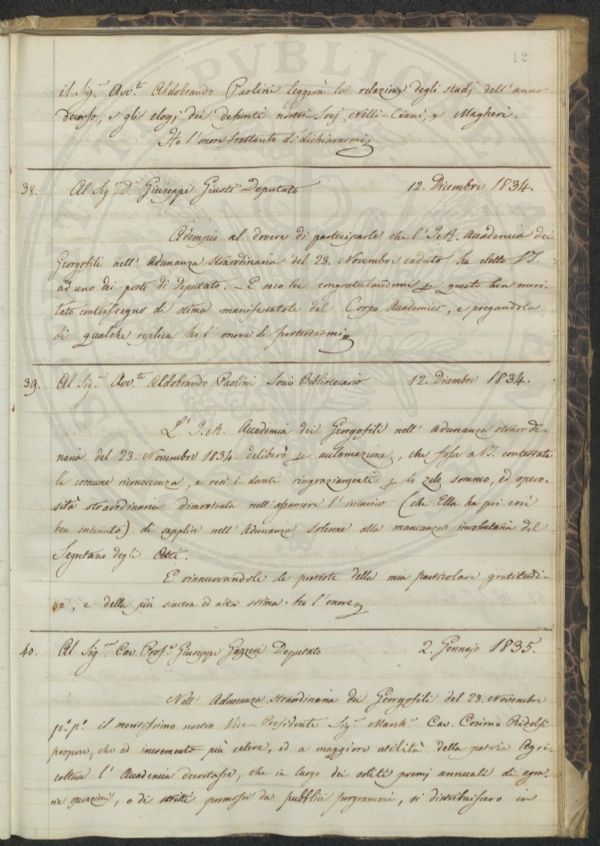 12
il Sig.r Avv.to Aldobrando Paolini leggerà la relazione degli studj dell'anno
decorso, e gli elogj dei defunti nostri Socj Nelli-Ciani, e Magheri.
Ho l'onore frattanto di dichiararmi
38. Al Sig.r D.r Giuseppe Giusti Deputato 12. Dicembre 1834.
Adempio al dovere di parteciparle che l'I. e R. Accademia dei
Georgofili nell'Adunanza straordinaria del 23. Novembre caduto ha eletto V.S.
ad uno dei posti di Deputato. E seco lei congratulandomi p questo ben meri-
tato contrassegno di stima manifestatole dal Corpo Accademico, e pregandola
di qualche replica ho l'onore di protestarmi
39. Al Sig.r Avv.to Aldobrando Paolini Socio Bibliotecario 12. Dicembre 1834.
L'I. e R. Accademia dei Georgofili nell'Adunanza straordi-
naria del 23. Novembre 1834. deliberò p acclamazione, che fosse a V.S. contestata
la comune riconoscenza, e resi i dovuti ringraziamenti p lo zelo sommo, ed opero-
sità straordinaria dimostrata nell'assumere l'incarico (che Ella ha poi così
ben sostenuto) di supplire nell'Adunanza solenne alla mancanza del
Segretario degli Atti.
E rinnuovandole le proteste della mia particolare gratitudi-
ne, e della più sincera ed alta stima ho l'onore
40. Al Sig.r Cav. Prof.e Giuseppe Gazzeri Deputato 2. Gennajo 1835.
Nell'Adunanza straordinaria dei Georgofili del 23. Novembre
p.o p.o il meritissimo nostro Vice-Presidente Sig.r March.e Cav. Cosimo Ridolfi
propose, che ad incremento più celere, ed a maggiore utilità della patria Agri-
coltura l'Accademia decretasse, che in luogo dei soliti premj annuali di
, o di scritti promossi da pubblici programmi, si distribuissero in